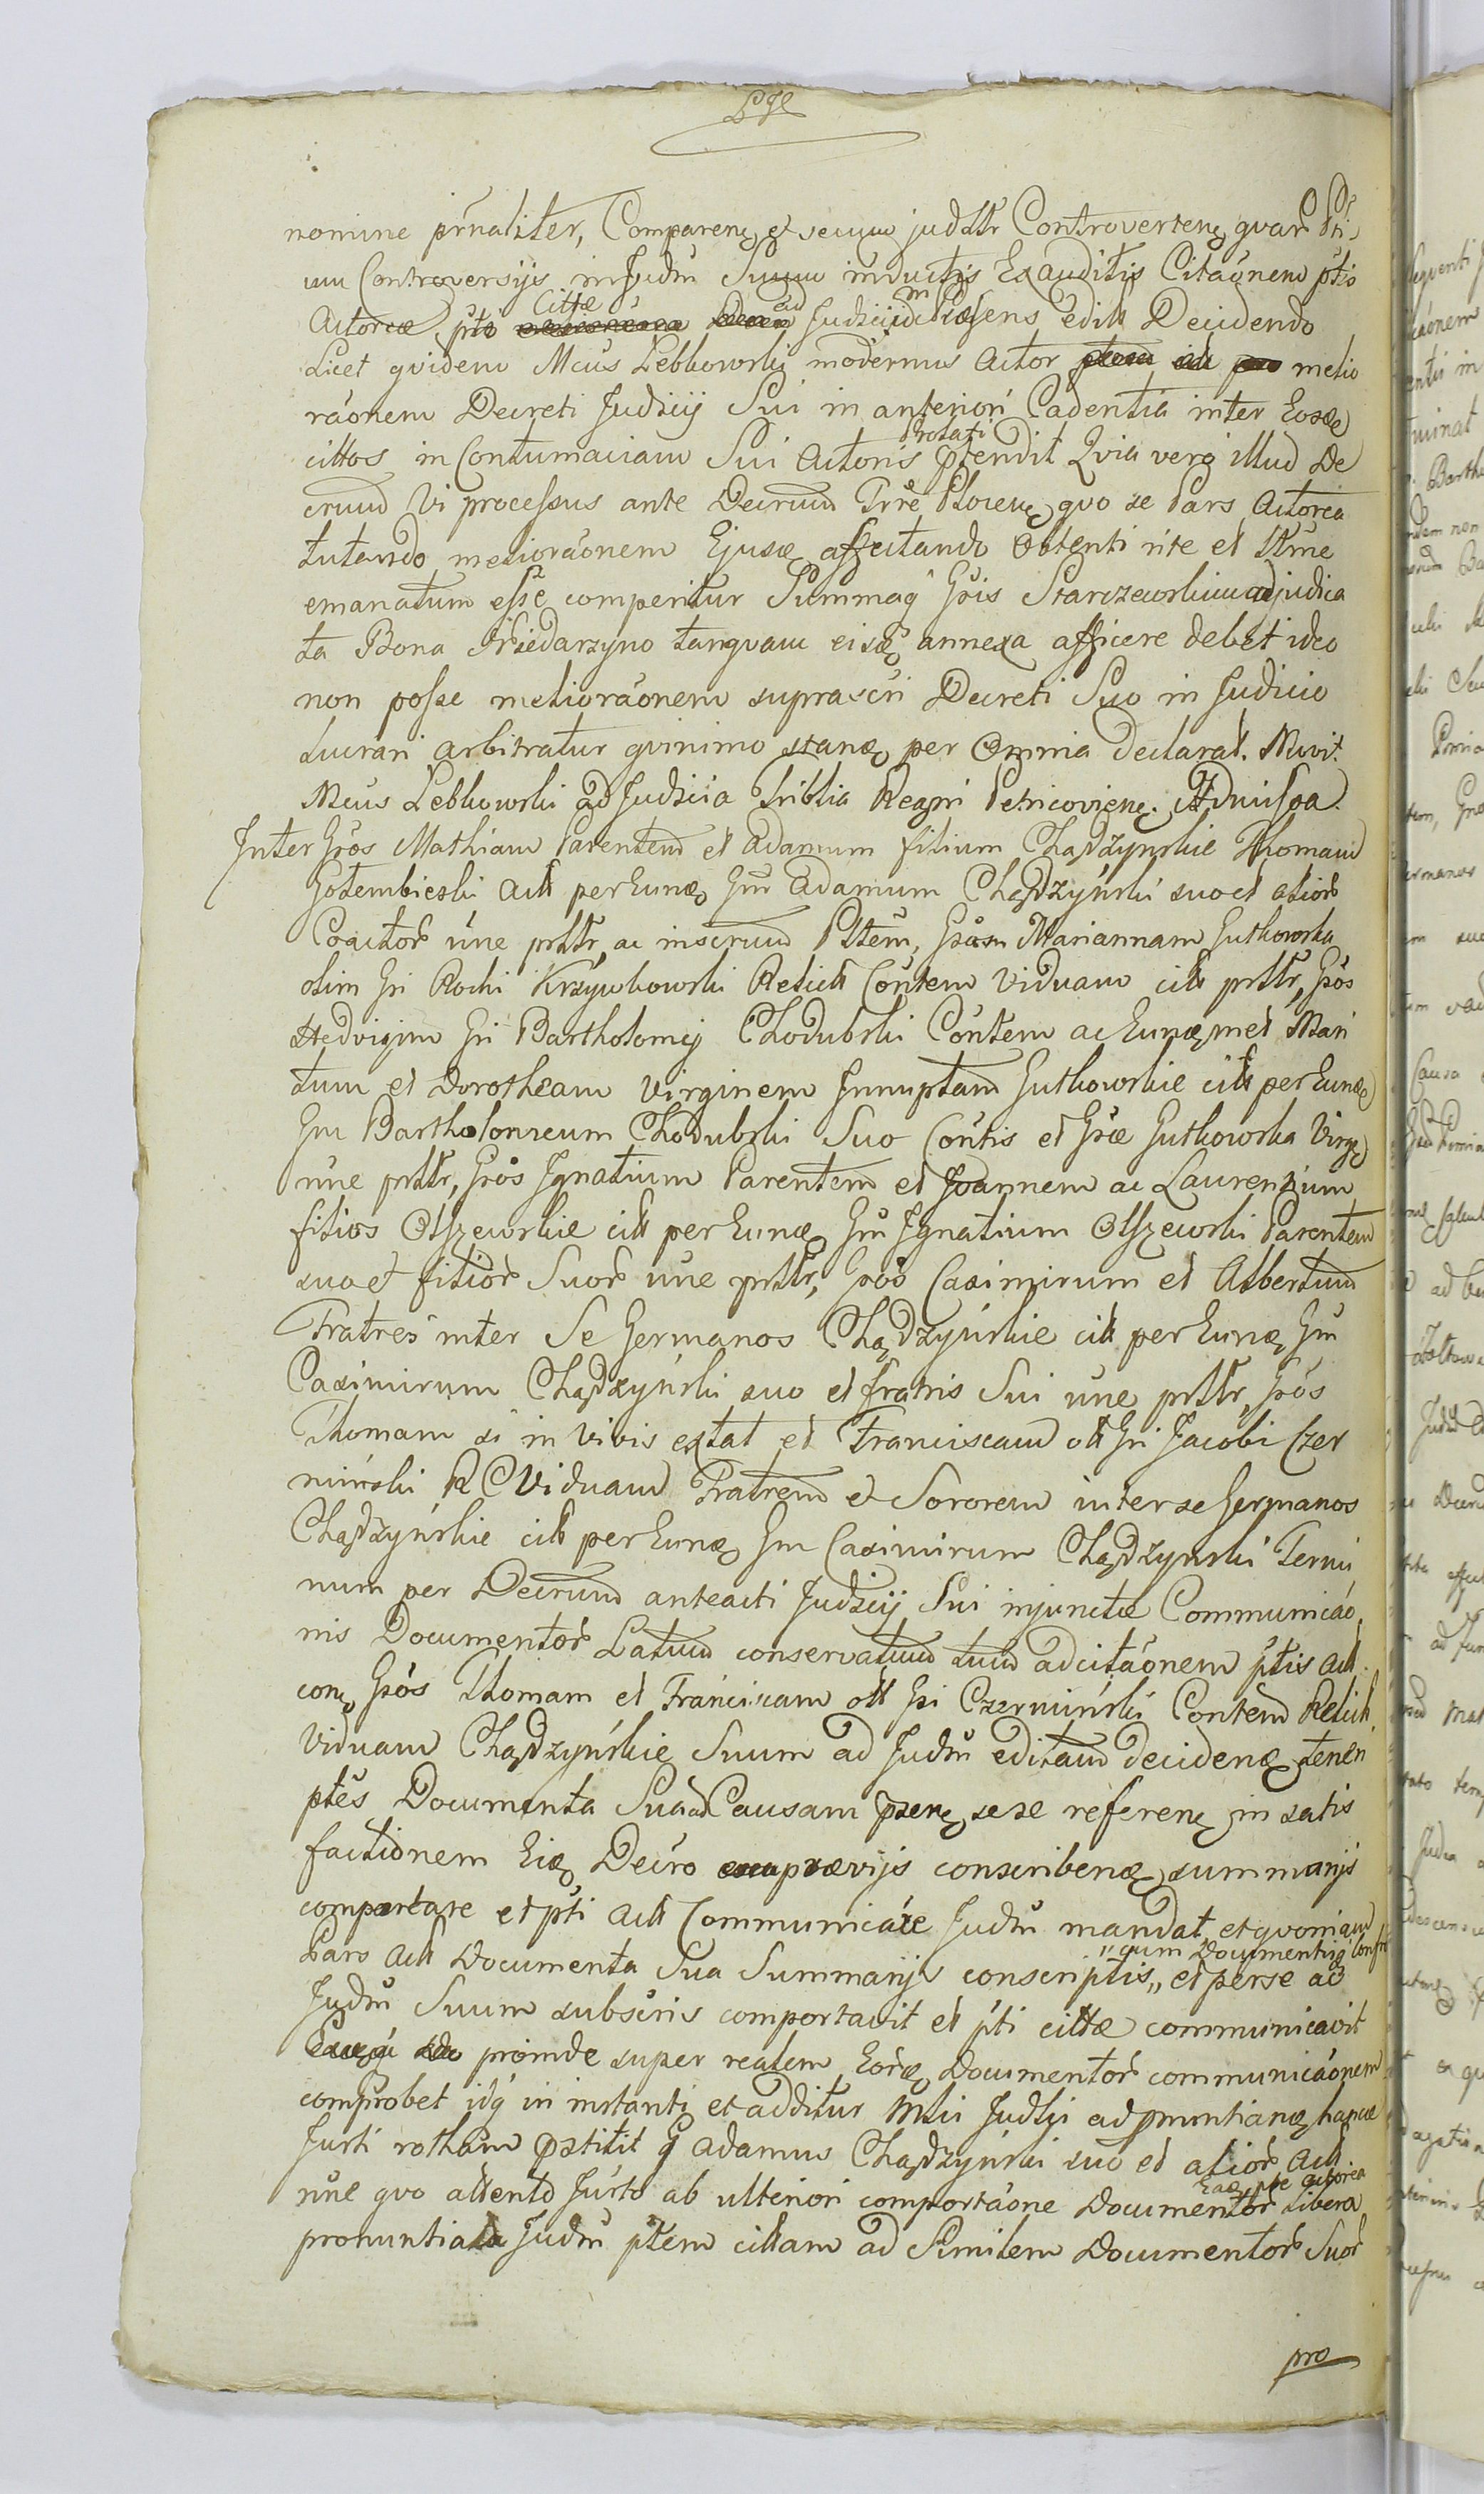 nomine prnaliter, Comparen, et secum judttr Controverten, quar Pti
um Controversijs in Judm Suum inductis Exauditis Citaonem ptis
Actoreæ pto Cittæ ad Judicium Præsens edik Decidendo
Licet quidem Mcus Lebkowski modernus Actor melio
raonem Decreti Judicij Sui in anteriori Cadentia inter Eosde
cittos in Contumaciam Sui Actoris Prolati ptendit Quia vero illud De
crum vi processus ante Decrum Trre Plocen, quo se Pars Actorea
tutando meliorãonem Ejusd affectando Obtenti rite et lttme
emanatum esse comperitur Summaq Gsis Starczewskim adjudica
ta Bona Niedarzyno tanquam eisd annexa afficere debet ideo
non posse meliorãonem suprascri Decreti Suo in Judicio
Lucrari arbitratur quinimo stand per Omnia declarat. Movit.
Mcus Lebkowski ad Judicia Triblia Regni Petricovien. Admissa.
Inter Gsos Mathiam Parentem et Adamum filium Chądzyńskie Thomam
Gołembieski Actt per Eund Gm Adamum Chądzyński suo et alior
Coactor ũne prttr, ac inscrum Pttem, Gsam Mariannam Gutkowska
olim Gsi Rochi Krzywkowski Relictt Contem Viduam citt prttr, Gsos
Hedvigim Gsi Bartholomej Chodubski Contem ac Eundmet Mari
tum et Dorotheam Virginem Innuptam Gutkowskie citt per Eund
Gm Bartholomeum Chodubski Suo Contis et Gsæ Gutkowska Virg
ũne prttr, Gsos Ignatium Parentem et Joannem ac Laurenzium
filios Olszewskie citt per Eund Gm Ignatium Olszewski Parentem
suo et filior Suor ũne prttr, Gsos Casimirum et Albertum
Fratres inter Se Germanos Chądzyńskie citt per Eund Gm
Casimirum Chądzyński suo et fratris Sui ũne prttr, Gsos
Thomam si in vivis extat et Franciscam olt Gsi Jacobi Czer
miński R C Viduam Fratrem et Sororem inter se Germanos
Chądzyńskie citt per Eund Gm Casimirum Chądzyński Termi
num per Decrum anteacti Judicij Sui injunctæ Communicao
nis Documentor Latum conservatum tum ad citãonem ptis Actt
con, Gsos Thomam et Franciscam olt Gsi Czermiński Contem Relictt
Viduam Chądzyńskie Suum ad Judm editam decidend tenen
ptes Documenta Sua ad Causam psen, sese referen, in satis
factionem Eid Decro prævijs conscribend summarijs
comportare et pti Actt Communicare Judm mandat, et quoniam
Pars Actt Documenta Sua Summarijs conscriptis „cum Documentis„ et per se ad
Judm Suum subscris comportavit et pti cittæ communicavit
proinde super realem Eord Documentor communicãonem
comprobet idq in instanti et additur Mlii Judlji ad pnuntiand hancce
Jurti rotham pstitit G Adamus Chądzyński suo et alior Actt
ũne quo attento Jurto ab ulteriori comportãone Documentor Ead pte actorea Libera
pronuntiata Judm ptem cittam ad Similem Documentor Suor
pro